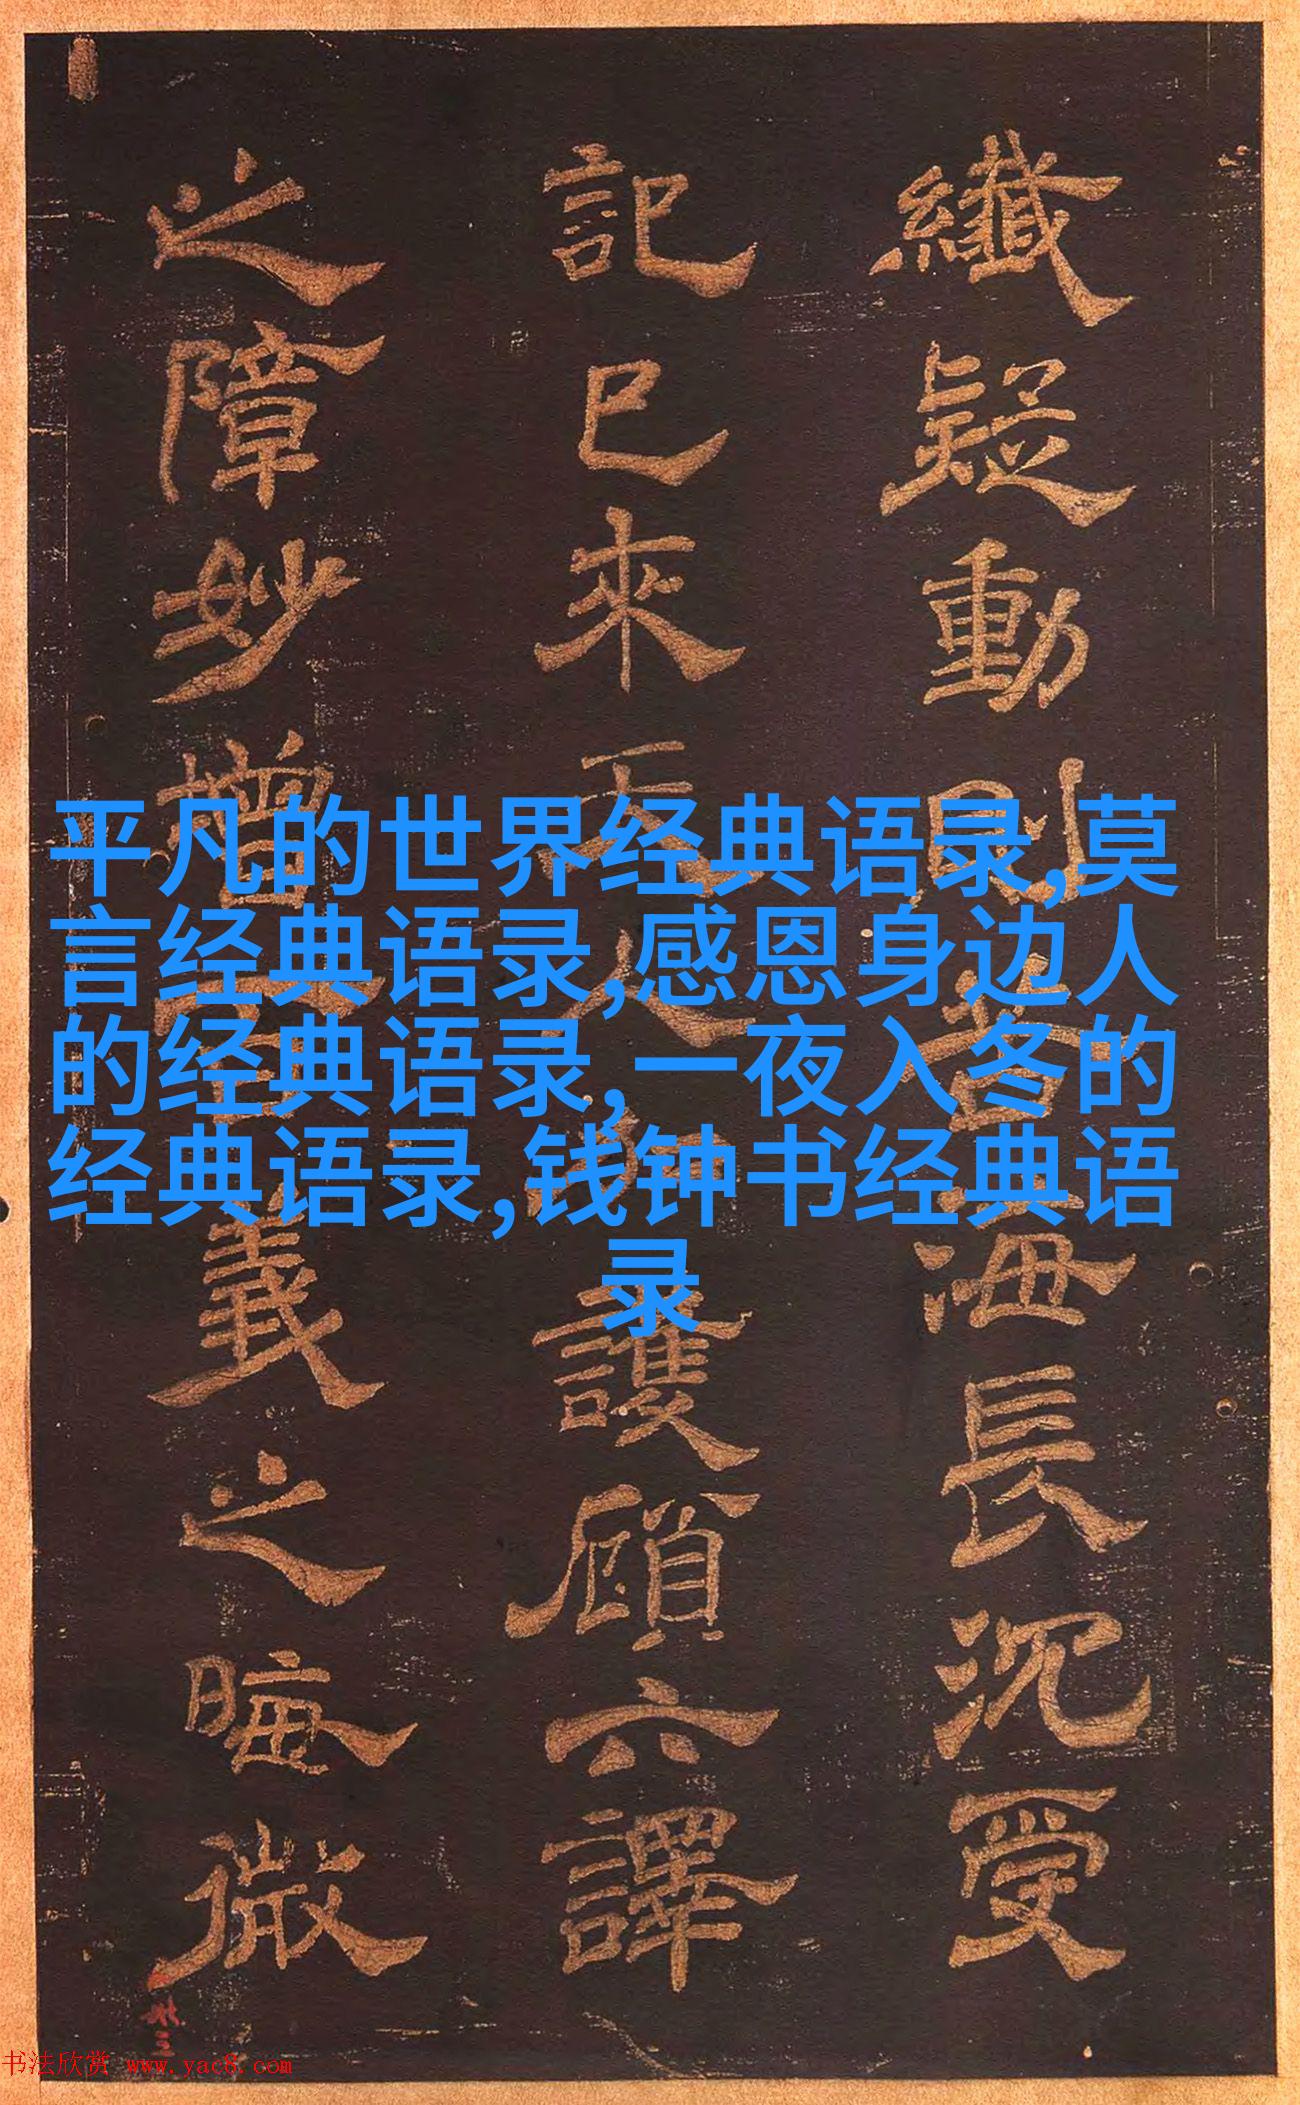 纖疑動則昏海長沉受
記已來天人護顧六譯
之障妙增義之晦微
平凡的世界经典语录,莫
言经典语录,感恩身边人
的经典语录,一夜入冬的
经典语录,钱钟书经典语
录
书法欣赏 www.yac8.com